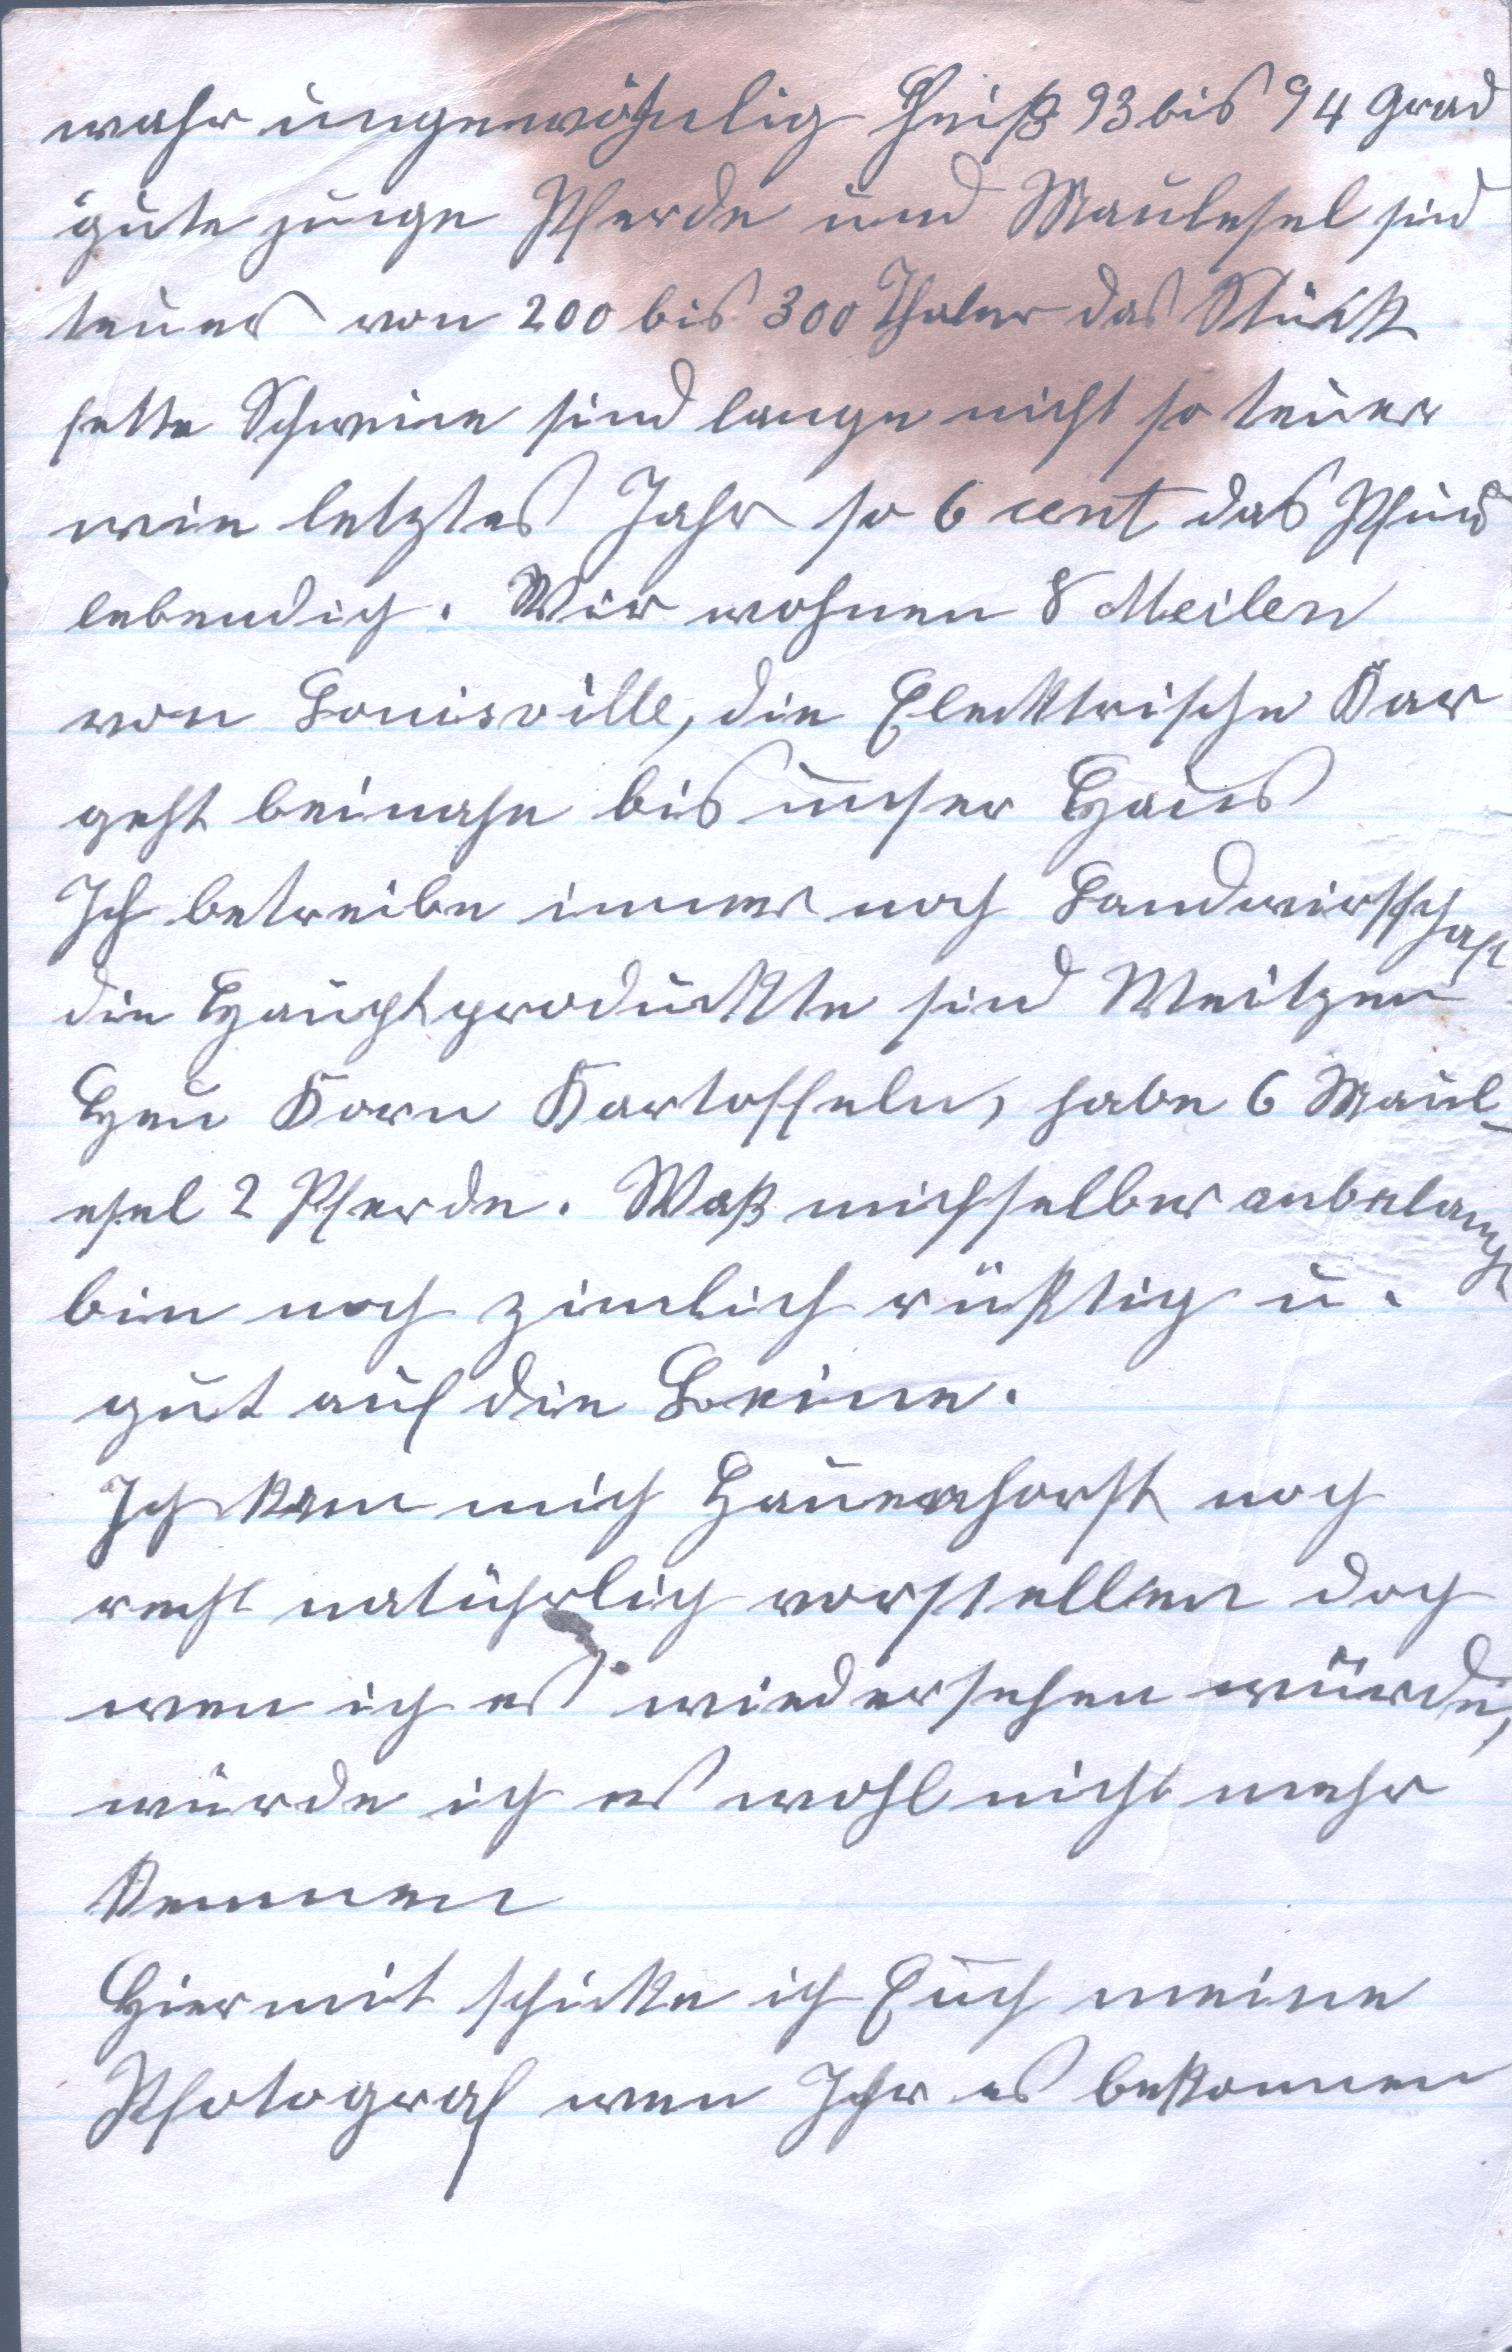 wahr ungewöhnlig heiß 93 bis 94 Grad
gute junge Pferde und Maulesel sind
teuer von 200 bis 300 Thaler das Stück
fette Schweine sind lange nicht so teuer
wie letztes Jahr so 6 cent das Pfund
lebendig. Wir wohnen 8 Meilen
von Louisville, die Elecktrische Kar
geht beinahe bis unser Haus
Ich betreibe immer noch Landwirtschaft
die Hauptproduckte sind Weitzen
Heu Korn Kartoffeln, habe 6 Maul-
esel 2 Pferde. Waß mich selber anbelangt
bin noch zimlich rüßtig u.
gut auf die Beine.
Ich kan mich Hauenhorst noch
recht natührlig vorstellen doch
wen ich es wiedersehen würde,
würde ich es wohl nicht mehr
kennen
Hiermit schicke ich Euch meine
Photograf wen Ihr es bekommen